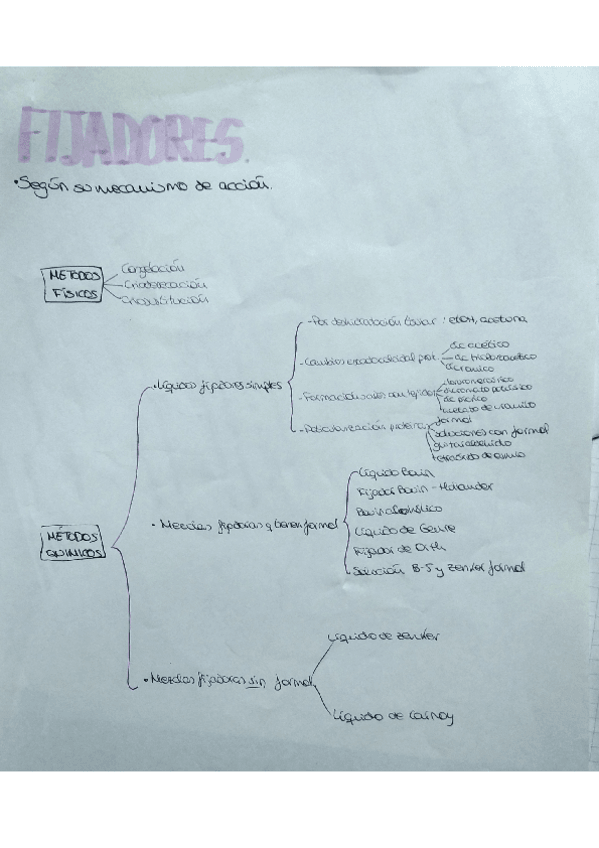 FIJADORES.
•Según su mecanismo de acción.
MÉTODOS
FÍSICOS
Congelación
Criodesecación
Criosustitución
- Por deshidratación tisular : etOH, acetona
•Líquidos fijadores simples
- Cambios estado coloidal prot.
ác acético
ác tricloroacético
ác crómico
- Formación sales con tejidos
cloruro mercúrico
dicromato potásico
ác pícrico
acetato de uranilo
proteínas
formol
soluciones con formol
glutaraldehído
tetraóxido de osmio
MÉTODOS
QUÍMICOS
• Mezclas fijadoras q tienen formol
Líquido Bouin
Fijador Bouin - Hollander
Bouin alcohólico
Líquido de
Fijador de Orth
Solución B-5 y Zenker formol
• Mezclas fijadoras sin formol
Líquido de Zenker
Líquido de Carnoy